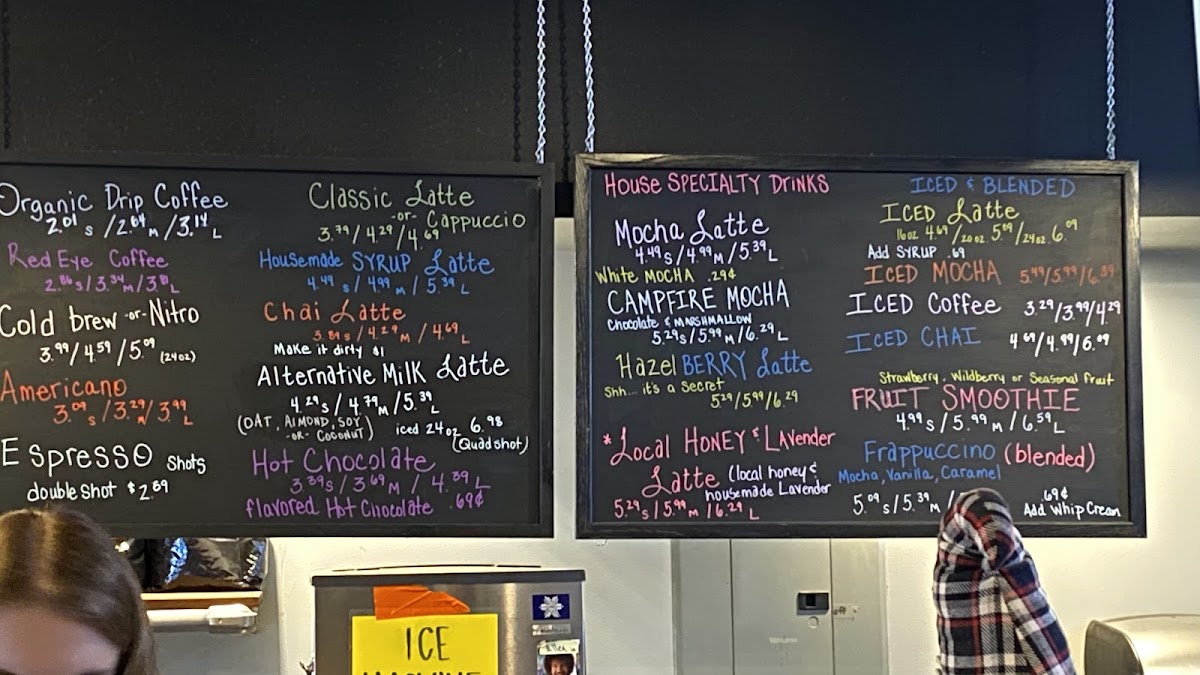 Organic Drip Coffee
2.01 S / 2.64 M / 3.14 L
Red Eye Coffee
2.86 S / 3.34 M / 3.81 L
Cold brew -or- Nitro
3.99 / 4.59 / 5.09 (24oz)
Americano
3.09 S / 3.29 M / 3.99 L
Espresso Shots
double shot $2.89
Classic Latte
-or- Cappuccio
3.79 / 4.29 / 4.69
Housemade SYRUP Latte
4.49 S / 4.99 M / 5.39 L
Chai Latte
3.89 S / 4.29 M / 4.69 L
Make it dirty $1
Alternative Milk Latte
4.29 S / 4.79 M / 5.39 L
(OAT, ALMOND, SOY
-OR- COCONUT)
iced 24oz 6.98
(Quad shot)
Hot Chocolate
3.39 S / 3.69 M / 4.39 L
flavored Hot Chocolate .69¢
House SPECIALTY DRINKS
Mocha Latte
4.49 S / 4.99 M / 5.39 L
White MOCHA .29¢
CAMPFIRE MOCHA
Chocolate & MARSHMALLOW
5.29 S / 5.99 M / 6.29 L
Hazel BERRY Latte
Shh... it's a secret
5.29 / 5.99 / 6.29
*Local HONEY & LAvender
Latte (local honey &
housemade Lavender
5.29 S / 5.99 M / 6.29 L
ICED & BLENDED
ICED Latte
16oz 4.69 / 20oz. 5.09 / 24oz. 6.09
Add SYRUP .69
ICED MOCHA 5.49 / 5.99 / 6.39
ICED Coffee 3.29 / 3.99 / 4.29
ICED CHAI 4.69 / 4.99 / 6.09
Strawberry, Wildberry or Seasonal fruit
FRUIT SMOOTHIE
4.99 S / 5.99 M / 6.59 L
Frappuccino (blended)
Mocha, Vanilla, Caramel
5.09 S / 5.39 M /
.69¢
Add Whip Cream
ICE
MACHINE